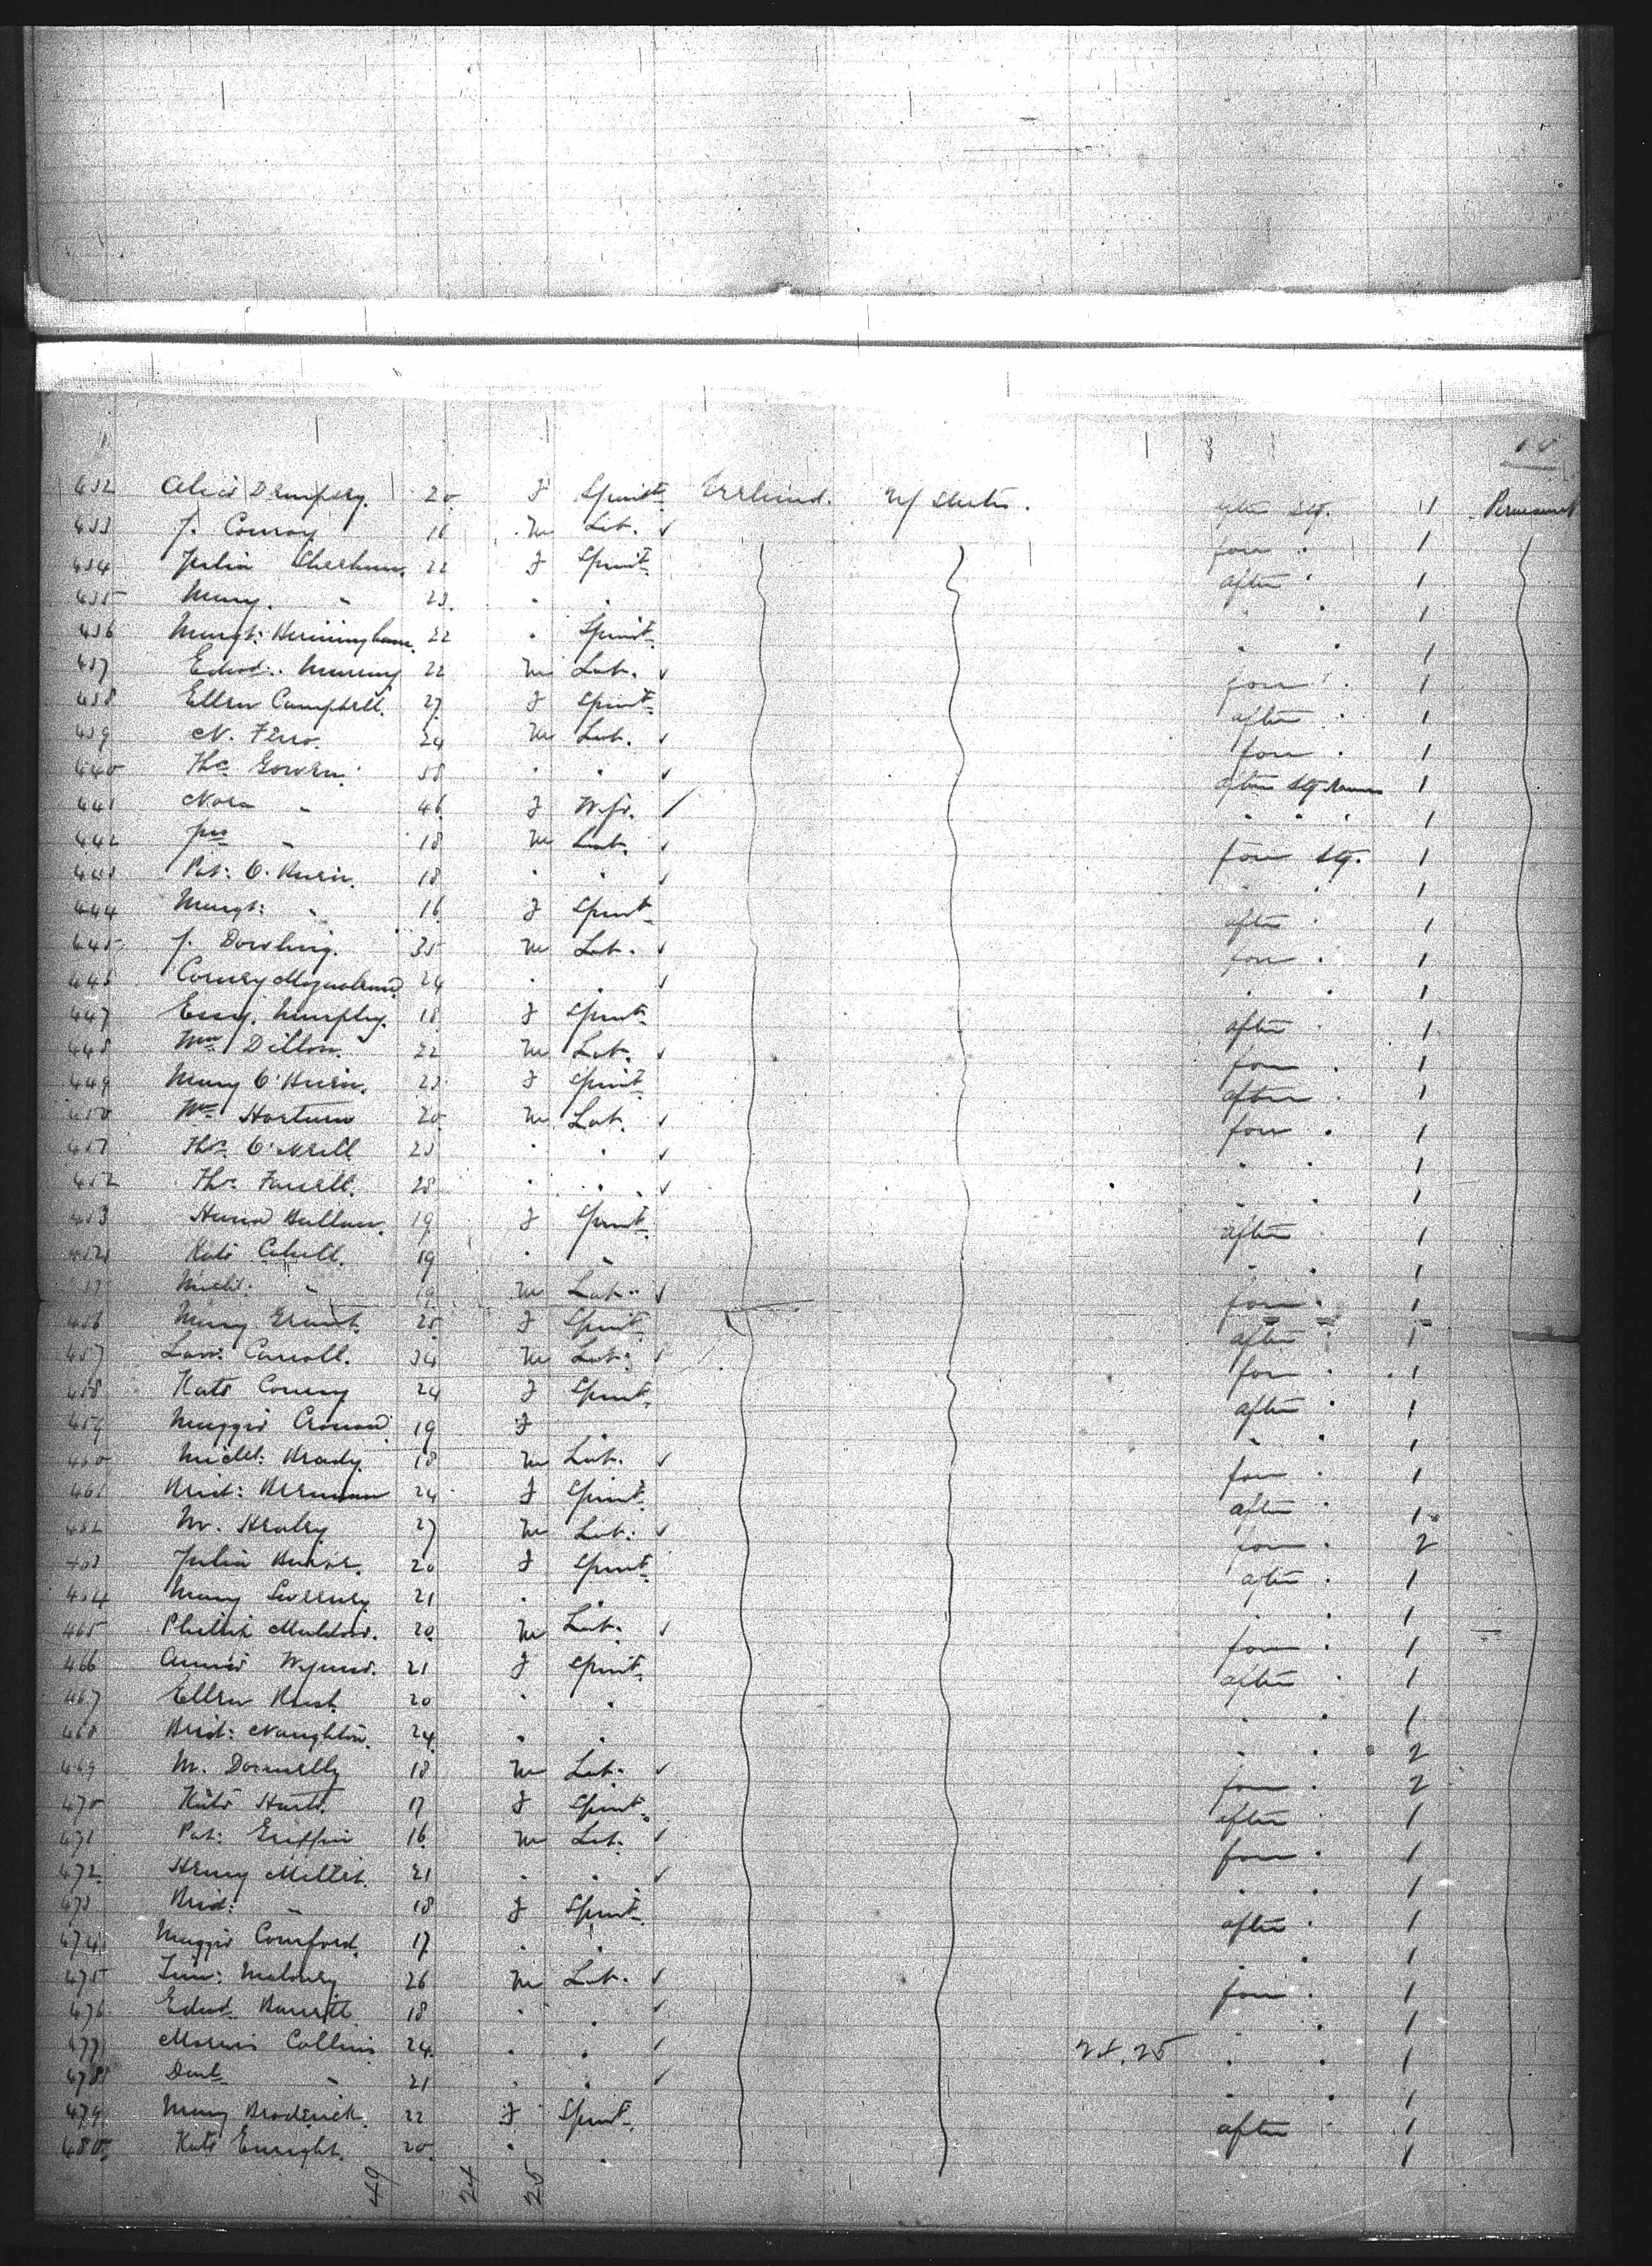 10
432 Alice Dempsey. 20 F Spinst. Ireland. U/States. after Stg. 1 Permanent
433 J. Conroy 16 M Lab. ✓ fore " 1
434 Julia Sheehan. 22 F Spinst. after " 1
435 Mary. " 23. " " " " 1
436 Margt: Herininghan. 22 " Spinst. " " 1
437 Edwd: Murray 22 M Lab. ✓ fore " 1
438 Ellen Campbell. 27 F Spinst. after " 1
439 N. 24 M Lab. ✓ fore " 1
440 Thos 58 " " ✓ after Stg 1
441 Nora " 46 F Wife. / " " " 1
442 Jas " 18 M Lab. ✓ fore Stg. 1
443 Pat: O'Brien. 18 " " ✓ " " 1
444 Margt: " 16 F Spinst. after " 1
445 J. Dowling. 35 M Lab. ✓ fore " 1
446 24 " " ✓ " " 1
447 Murphy. 18 F Spinst. after " 1
448 Wm Dillon. 22 M Lab. ✓ fore " 1
449 Mary O'Brien. 23 F Spinst. after " 1
450 Wm 20 M Lab. ✓ fore " 1
451 Thos O'Neill 23 " " ✓ " " 1
452 Thos Farrell. 28 " " ✓ " " 1
453 19 F Spinst. after " 1
454 Kate Cahill. 19 " " " " 1
455 Michl: " 19 M Lab. ✓ fore " 1
456 Mary Grant. 25 F Spinst. after " 1
457 Law: Carroll. 34 M Lab. ✓ fore " 1
458 Kate 24 F Spinst. after " 1
459 Maggie 19 F " " " 1
460 Michl: Brady. 18 M Lab. ✓ fore " 1
461 Brid: Brennan 24 F Spinst. after " 1
462 M. Healey 27 M Lab. ✓ fore " 2
463 Julia 20 F Spinst. after " 1
464 Mary Sweeney. 21 " " " " 1
465 Phillip Muldoon. 20 M Lab. ✓ fore " 1
466 Annie Wynne. 21 F Spinst. after " 1
467 Ellen 20 " " " " 1
468 Brid: Naughton. 24 " " " " 2
469 M. Donnelly 18 M Lab. ✓ fore " 2
470 Kate 17 F Spinst. after " 1
471 Pat: Griffin 16 M Lab. ✓ fore " 1
472 Henry Millet. 21 " " ✓ " " 1
473 Brid: " 18 F Spinst. after " 1
474 Maggie Comford. 17 " " " " 1
475 Moloney 26 M Lab. ✓ fore " 1
476 Edwd Barrett 18 " " ✓ " " 1
477 Morris Collins 24 " " ✓ 24.25 " " 1
478 Danl " 21 " " ✓ " " 1
479 Mary Broderick. 22 F Spinst. after " 1
480 Kate Enright. 20 " " 1
49 24 25